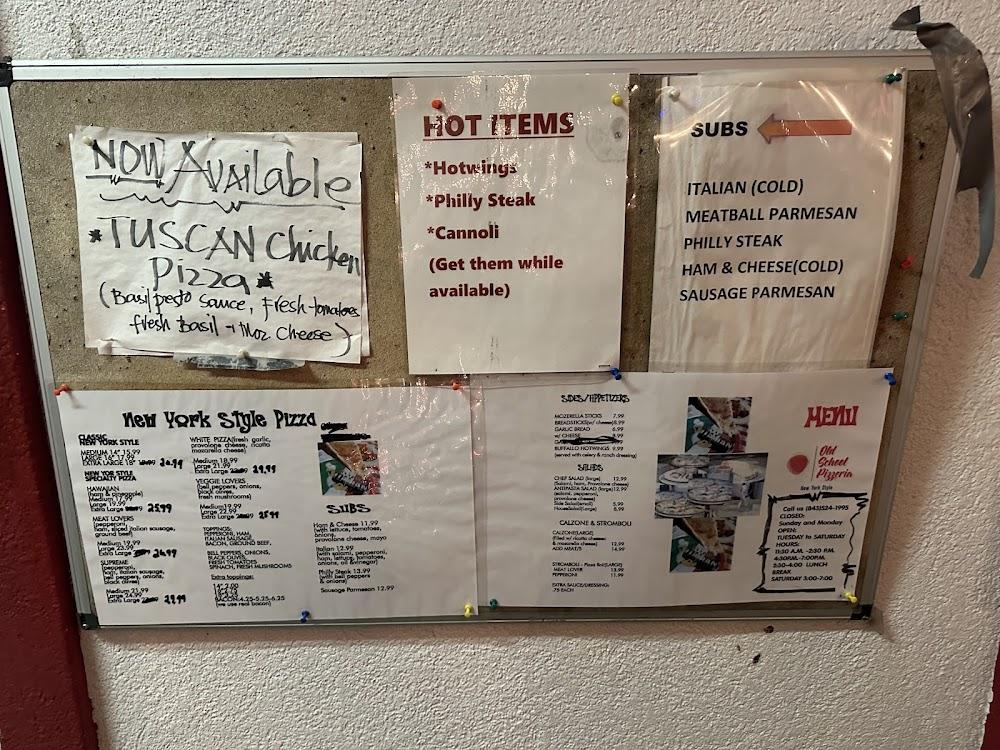 NOW Available
*TUSCAN Chicken
Pizza*
(Basil pesto sauce, fresh tomatoes
fresh Basil + moz. Cheese)
HOT ITEMS
*Hotwings
*Philly Steak
*Cannoli
(Get them while
available)
SUBS
ITALIAN (COLD)
MEATBALL PARMESAN
PHILLY STEAK
HAM & CHEESE(COLD)
SAUSAGE PARMESAN
New York Style Pizza
CLASSIC
NEW YORK STYLE
MEDIUM 14" 15.99
LARGE 16" 17.99
EXTRA LARGE 18"
NEW YOR STYLE
SPECIALTY PIZZA
HAWAIIAN
(ham & pineapple)
Medium 17.99
Large 19.99
Extra Large 25.99
MEAT LOVERS
(pepperoni,
ham, sliced italian sausage,
ground beef)
Medium
Large 23.99
Extra Large 26.99
SUPREME
(pepperoni,
ham, italian sausage,
bell peppers, onions,
black olives)
Medium 21.99
Large 24.99
Extra Large 29.99
WHITE PIZZA(fresh garlic,
provolone cheese, ricotta
mozzarella cheese)
Medium 18.99
Large 21.99
Extra Large 29.99
VEGGIE LOVERS
(bell peppers, onions,
black olives,
fresh mushrooms)
Medium19.99
Large 22.99
Extra Large
TOPPINGS:
PEPPERONI, HAM,
ITALIAN SAUSAGE,
BACON, GROUND BEEF,
BELL PEPPERS, ONIONS,
BLACK OLIVES,
FRESH TOMATOES
SPINACH, FRESH MUSHROOMS
Extra toppings:
14" 2.00
BACON:4.25-5.25-6.25
(we use real bacon)
SUBS
Ham & Cheese 11.99
(with lettuce, tomatoes,
onions,
provolone cheese, mayo
Italian 12.99
(with salami, pepperoni,
ham, lettuce, tomatoes,
onions, oil & vinegar)
Philly Steak 13.99
(with bell peppers
& onions)
Sausage Parmesan 12.99
SIDES/APPETIZERS
MOZERELLA STICKS 7.99
BREADSTICKS(w/ cheese)8.99
GARLIC BREAD 6.99
w/ CHEESE
BUFFALO HOTWINGS 9.99
(served with celery & ranch dressing)
SALADS
CHEF SALAD (large) 12.99
(Salami, ham, Provolone cheese)
ANTIPASTA SALAD (large)12.99
(salami, pepperoni,
provolone cheese)
CALZONE & STROMBOLI
CALZONE(LARGE)
(filled w/ ricotta cheese
& mozzarella cheese) 12.99
ADD MEAT/S 14.99
STROMBOLI - Pizza Roll(LARGE)
MEAT LOVER 13.99
PEPPERONI 11.99
EXTRA SAUCE/DRESSING:
.75 EACH
MENU
Old
School
Pizzeria
New York Style
Call us (843)524-1995
CLOSED:
Sunday and Monday
OPEN:
TUESDAY to SATURDAY
HOURS:
11:30 A.M. -2:30 P.M.
4:30P.M.-7:00P.M.
2:30-4:00 LUNCH
BREAK
SATURDAY 3:00-7:00